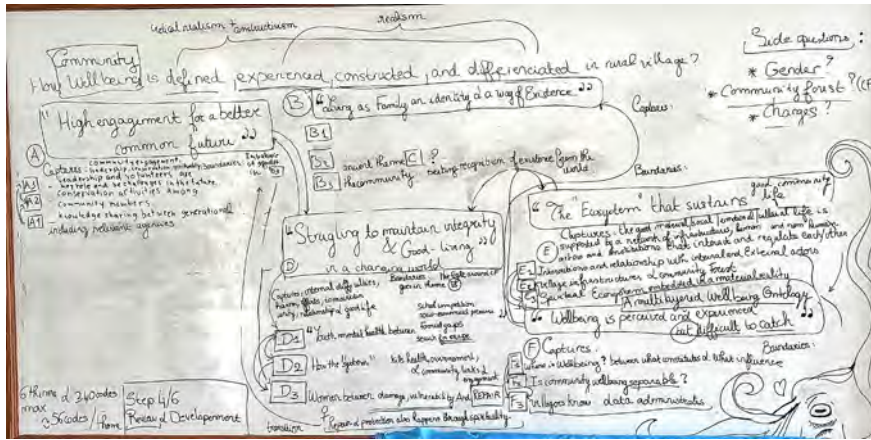 critical realism + constructivism
realism
Community
How Wellbeing is defined, experienced, constructed, and differentiated in rural village?
Side questions :
* Gender ?
* Community forest ? (CF
* Changes ?
"High engagement for a better
common future"
A
Captures:
community engagement
leadership and volunteers are
key role and be challenges in the future
A2
Conservation activities among
community members.
A1
knowledge sharing between generational
including relevant agencies
B
"Living as Family an identity & a way of Existence"
Captures:
Boundaries:
B1
B2
invivent theme C ?
B3
the community seeking recognition of existence from the
world
"Strugling to maintain integrity
& Good-living"
in a changing world
D
Captures: internal difficulties,
Boundaries
D1
"Youth mental health between
School competition
socio-economical pressures
formal gaps
D2
How the System"
of community links &
engagement
D3
Women between damage, vulnerability And REPAIR
transition
Repair & protection also happens through spirituality
"The "Ecosystem" that sustains
good community
life
E
Captures: the good
supported by a network of infrastructures, human and non
actors and institutions that interact and regulate each other
E1
Interactions and relationship with internal and External actors
E2
Village infrastructures & community forest
E3
Spiritual Ecosystem embodied in a material reality
A multilayered Wellbeing Ontology
"Wellbeing is perceived and experienced
but difficult to catch"
Boundaries:
F
Captures:
F1
where is Wellbeing? between what constitutes & what influence
F2
Is community wellbeing separable ?
F3
Villagers know data administratis
6 themes & 340 codes
max
≈ 56 codes / theme
Step 4/6
Review & Developement